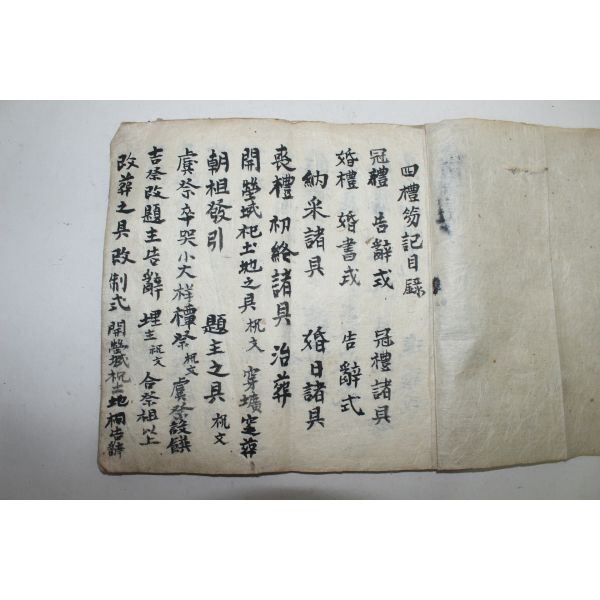 四禮笏記目錄
冠禮 告辭式 冠禮諸具
婚禮 婚書式 告辭式
納采諸具 婚日諸具
喪禮 初終諸具 治葬
開塋域祀土地之具 祝文 穿壙窆葬
朝祖發引 題主之具 祝文
虞祭卒哭小大祥禫祭 祝文 虞祭設饌
吉祭改題主告辭 埋主祝文 合祭祖以上
改葬之具 改制式 開塋域祝土地祠告辭